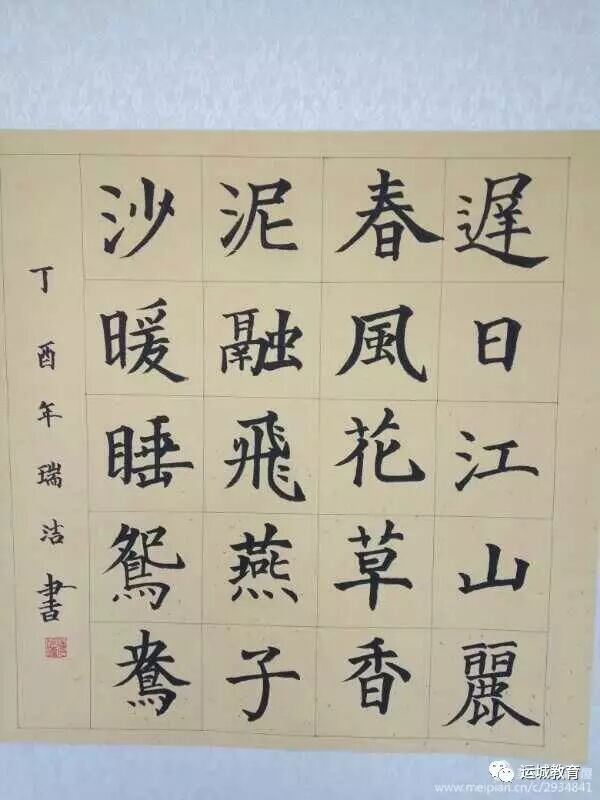 遲日江山麗
春風花草香
泥融飛燕子
沙暖睡鴛鴦
丁酉年瑞洁書
运城教育
www.meipian.cn/c/2934841